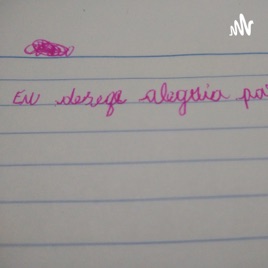 Eu desejo alegria pa